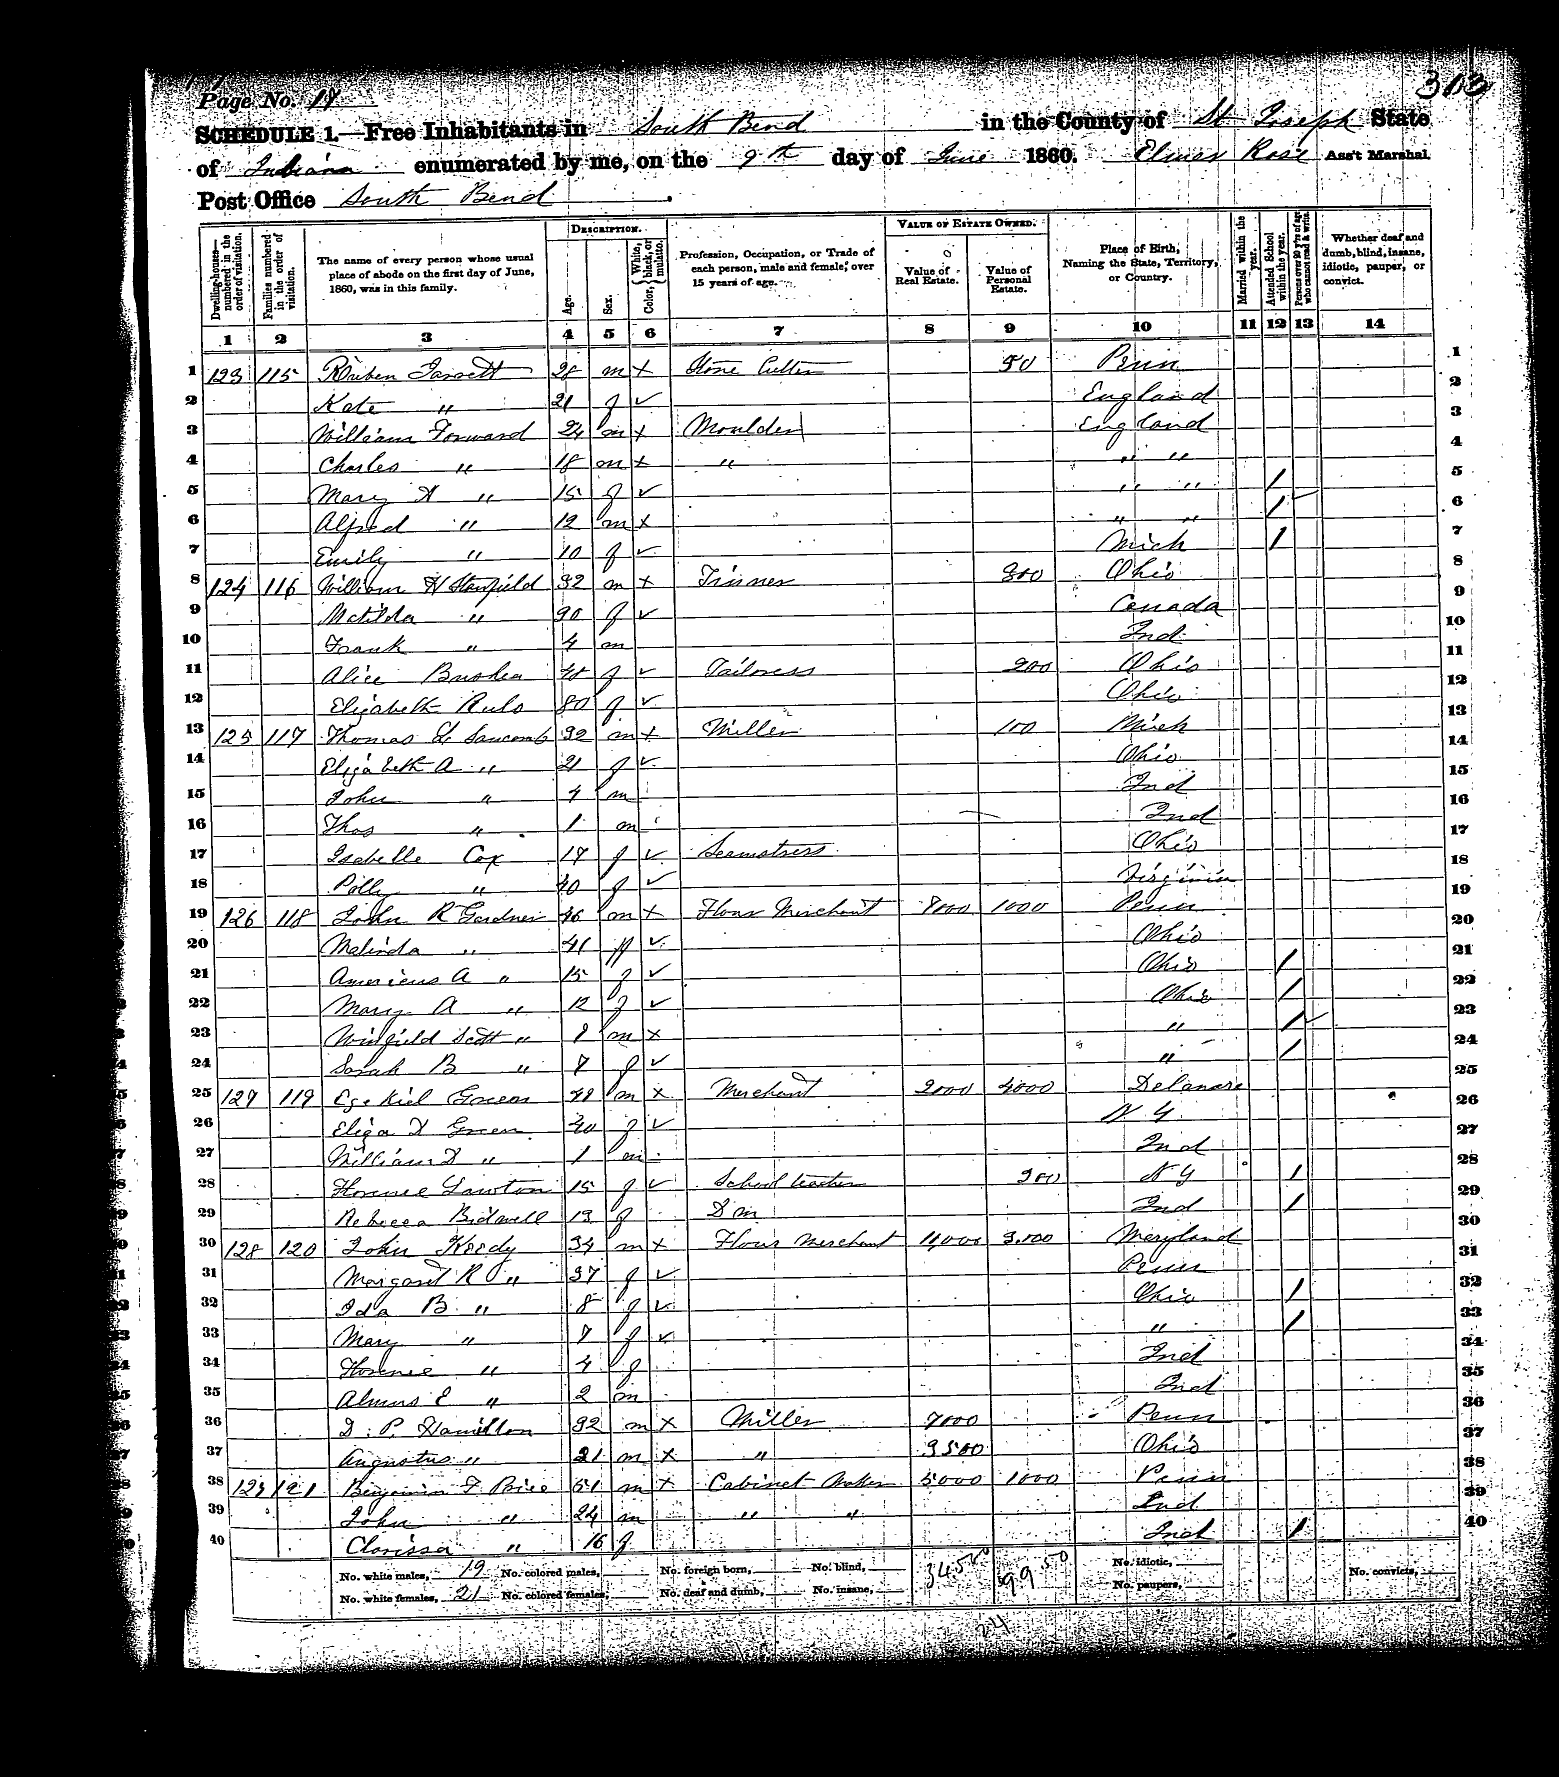 Page No. 17
303
SCHEDULE 1.—Free Inhabitants in South Bend in the County of St Joseph State
of Indiana enumerated by me, on the 9th day of June 1860. Elmer Rose Ass't Marshal.
Post Office South Bend
Dwelling-houses—numbered in the order of visitation.
Families numbered in the order of visitation.
The name of every person whose usual place of abode on the first day of June, 1860, was in this family.
DESCRIPTION.
Age.
Sex.
Color, White, black, or mulatto.
Profession, Occupation, or Trade of each person, male and female, over 15 years of age.
VALUE OF ESTATE OWNED.
Value of Real Estate.
Value of Personal Estate.
Place of Birth, Naming the State, Territory, or Country.
Married within the year.
Attended School within the year.
Persons over 20 y'rs of age who cannot read & write.
Whether deaf and dumb, blind, insane, idiotic, pauper, or convict.
1 2 3 4 5 6 7 8 9 10 11 12 13 14
1 123 115 Reuben Jarrett 28 m x Stone Cutter 50 Penn 1
2 Kate " 21 f ✓ England 2
3 William Forward 24 m x Moulder England 3
4 Charles " 18 m x " " " 4
5 Mary A " 15 f ✓ " " / 5
6 Alfred " 12 m x " " / 6
7 Emily " 10 f ✓ Mich / 7
8 124 116 William H Stanfield 32 m x Tinner 300 Ohio 8
9 Matilda " 30 f ✓ Canada 9
10 Frank " 4 m Ind 10
11 Alice 40 f ✓ Tailoress 200 Ohio 11
12 Elizabeth Rulo 80 f ✓ Ohio 12
13 125 117 Thomas 32 m x Miller 100 Mich 13
14 Elizabeth A " 21 f ✓ Ohio 14
15 John " 4 m Ind 15
16 Thos " 1 m Ind 16
17 Isabelle Cox 17 f ✓ Seamstress Ohio 17
18 Polly " 40 f ✓ Virginia 18
19 126 118 John R Gardner 46 m x Flour Merchant 8000 1000 Penn 19
20 Malinda " 41 f ✓ Ohio 20
21 Americus A " 15 f ✓ Ohio / 21
22 Mary A " 12 f ✓ Ohio / 22
23 Winfield Scott " 8 m x " / 23
24 Sarah B " 7 f ✓ " / 24
25 127 119 Ezekiel Green 48 m x Merchant 2000 4000 Delaware 25
26 Eliza D Green 40 f ✓ N Y 26
27 William D " 1 m Ind 27
28 Florence Lawton 15 f ✓ School teacher 200 N Y / 28
29 Rebecca Bidwell 13 f Dm Ind / 29
30 128 120 John Keedy 34 m x Flour Merchant 11,000 3,100 Maryland 30
31 Margaret R " 37 f ✓ Penn 31
32 Ida B " 8 f ✓ Ohio / 32
33 Mary " 7 f ✓ " / 33
34 Florence " 4 f Ind 34
35 E " 2 m Ind 35
36 D. P. Hamilton 32 m x Miller 7000 Penn 36
37 Augustus " 21 m x " 3500 Ohio 37
38 129 121 Benjamin F Price 51 m x Cabinet Maker 5000 1000 Penn 38
39 John " 24 m " " Ind 39
40 Clarissa " 16 f Ind / 40
No. white males, 19 No. colored males, No. foreign born, No. blind, 34500 9950 No. idiotic, No. convicts,
No. white females, 21 No. colored females, No. deaf and dumb, No. insane, No. paupers,
24